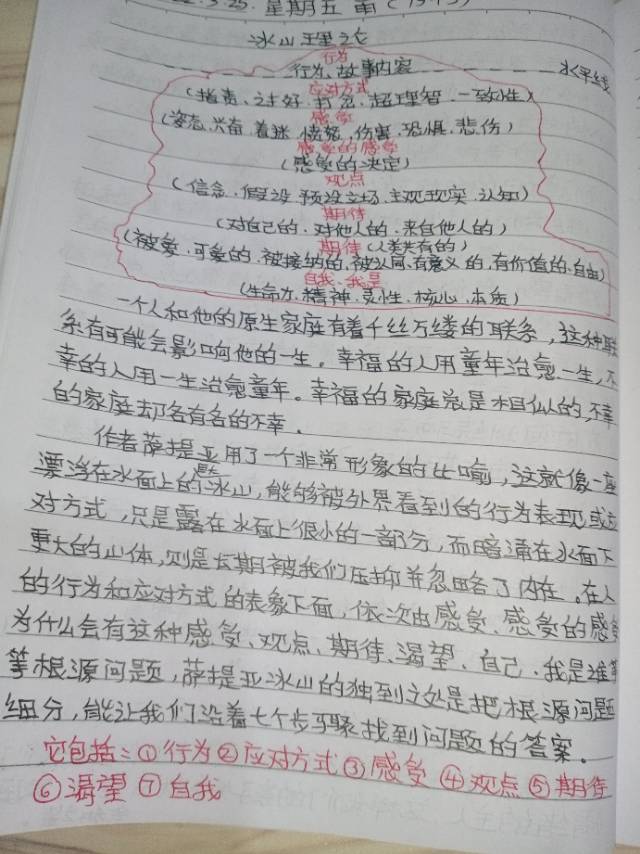 22.3.25.星期五 雨(
冰山理论
行为
行为、故事内容 水平线
应对方式
(指责、讨好、打岔、超理智、一致性)
感受
(姿态、兴奋、着迷、愤怒、伤害、恐惧、悲伤)
感受的感受
(感受的决定)
观点
(信念、假设、预设立场、主观现实、认知)
期待
(对自己的、对他人的、来自他人的)
期待(人类共有的)
(被爱、可爱的、被接纳的、被认同、有意义的、有价值的、自由)
自我、我是
(生命力、精神、灵性、核心、本质)
一个人和他的原生家庭有着千丝万缕的联系,这种联
系有可能会影响他的一生。幸福的人用童年治愈一生,不
幸的人用一生治愈童年。幸福的家庭总是相似的,不幸
的家庭却各有各的不幸。
作者萨提亚用了一个非常形象的比喻,这就像一座
漂浮在水面上的冰山,能够被外界看到的行为表现或应
对方式,只是露在水面上很小的一部分,而暗涌在水面下
更大的山体,则是长期被我们压抑并忽略了内在。在人
的行为和应对方式的表象下面,依次由感受、感受的感受
为什么会有这种感受、观点、期待、渴望、自己、我是谁等
等根源问题,萨提亚冰山的独到之处是把根源问题
细分,能让我们沿着七个步骤找到问题的答案。
它包括:①行为②应对方式③感受④观点⑤期待
⑥渴望⑦自我